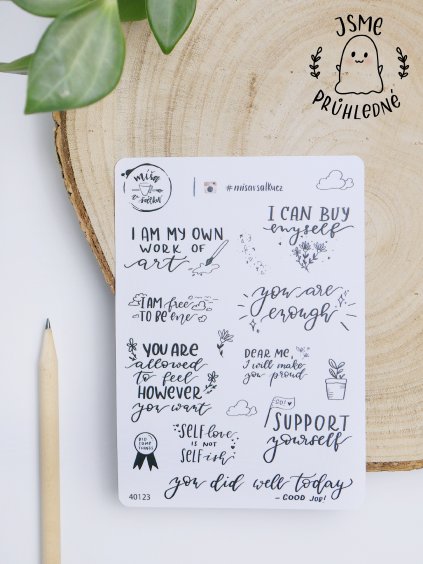 JSME
PRŮHLEDNÉ
míša
v šálku
#misavsalkucz
I CAN BUY
myself
I AM MY OWN
WORK OF
art
you are
enough
I AM free
TO BE me
YOU ARE
allowed
to feel
HOWEVER
you want
DEAR ME,
I will make
you proud
GO!
SUPPORT
yourself
DID
SOME
THINGS
Self-love
IS NOT
SELFish
you did well today
- GOOD JOB!
40123